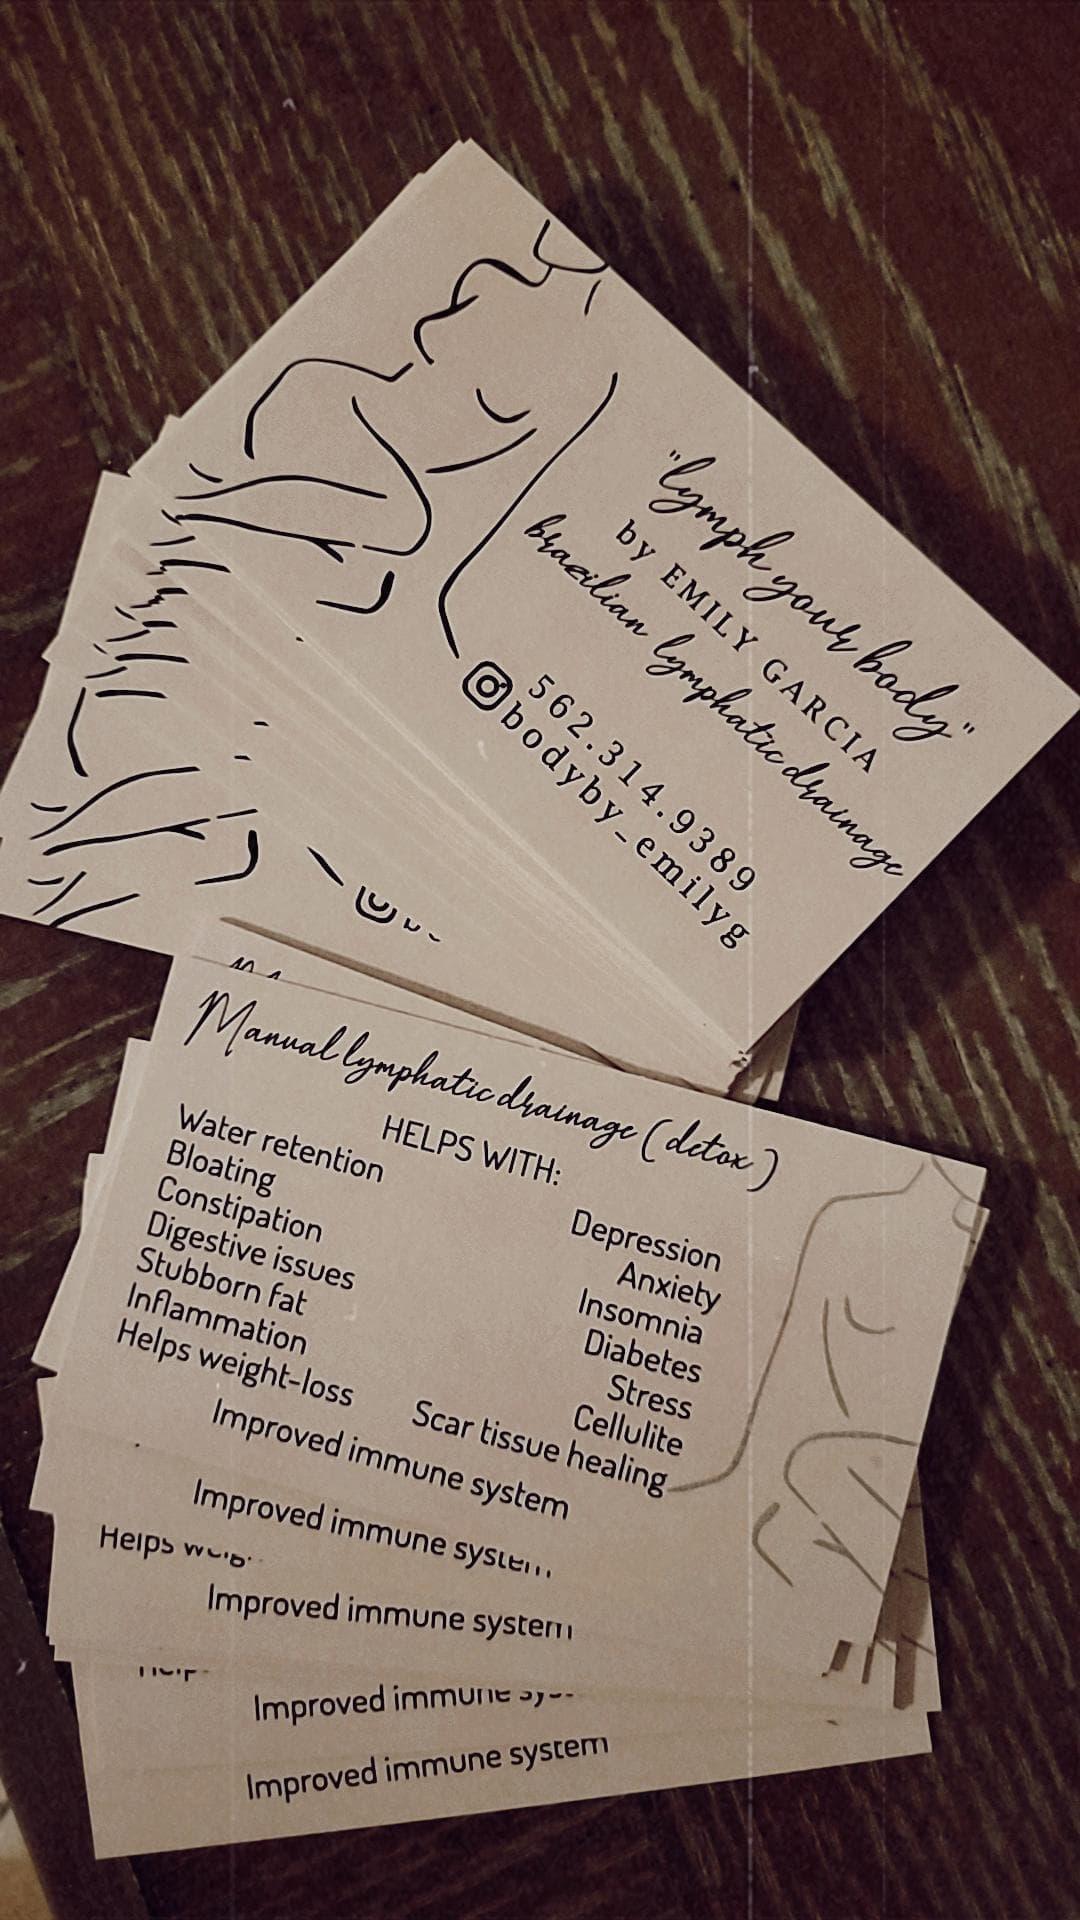 "lymph your body"
by EMILY GARCIA
brazilian lymphatic drainage
562.314.9389
bodyby_emilyg
Manual lymphatic drainage (detox)
HELPS WITH:
Water retention
Bloating
Constipation
Digestive issues
Stubborn fat
Inflammation
Helps weight-loss
Depression
Anxiety
Insomnia
Diabetes
Stress
Cellulite
Scar tissue healing
Improved immune system
Improved immune system
Helps
Improved immune system
Improved immune
Improved immune system